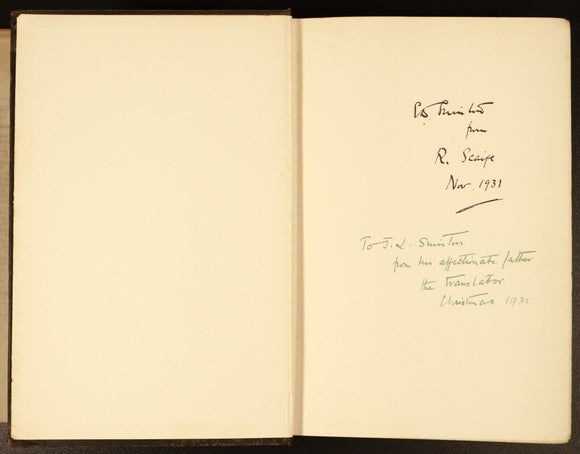 E.D. Swinton
from
R. Scaife
Nov. 1931
To J. L. Swinton
from his affectionate father
the translator
Christmas 1931.